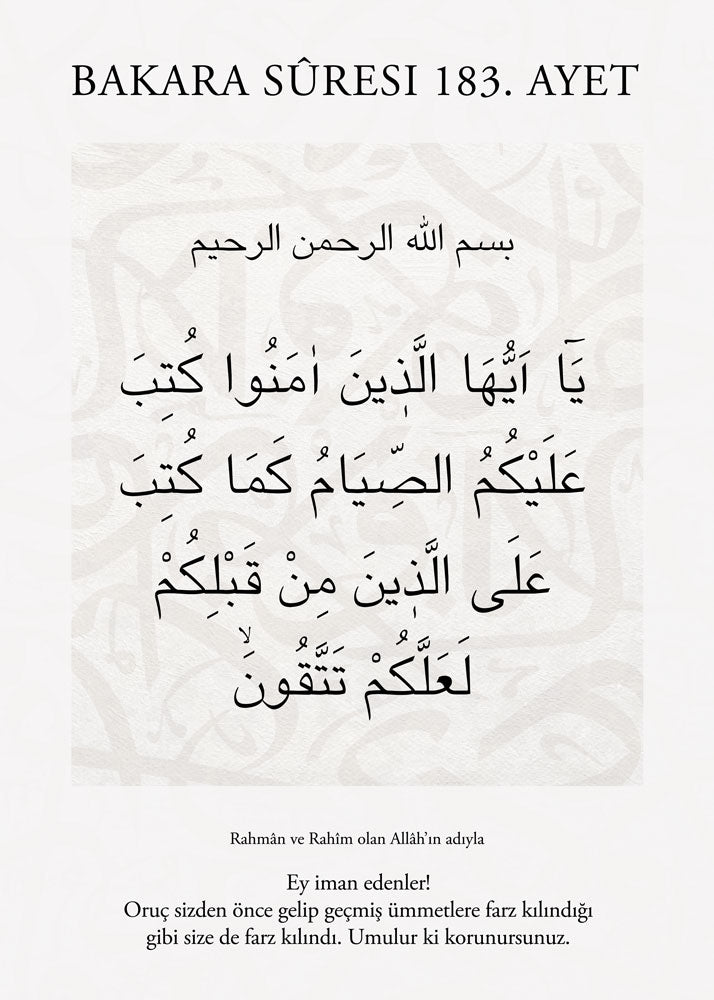 BAKARA SÛRESI 183. AYET
بسم الله الرحمن الرحيم
يَٓا اَيُّهَا الَّذٖينَ اٰمَنُوا كُتِبَ
عَلَيْكُمُ الصِّيَامُ كَمَا كُتِبَ
عَلَى الَّذٖينَ مِنْ قَبْلِكُمْ
لَعَلَّكُمْ تَتَّقُونَۙ
Rahmân ve Rahîm olan Allâh’ın adıyla
Ey iman edenler!
Oruç sizden önce gelip geçmiş ümmetlere farz kılındığı
gibi size de farz kılındı. Umulur ki korunursunuz.